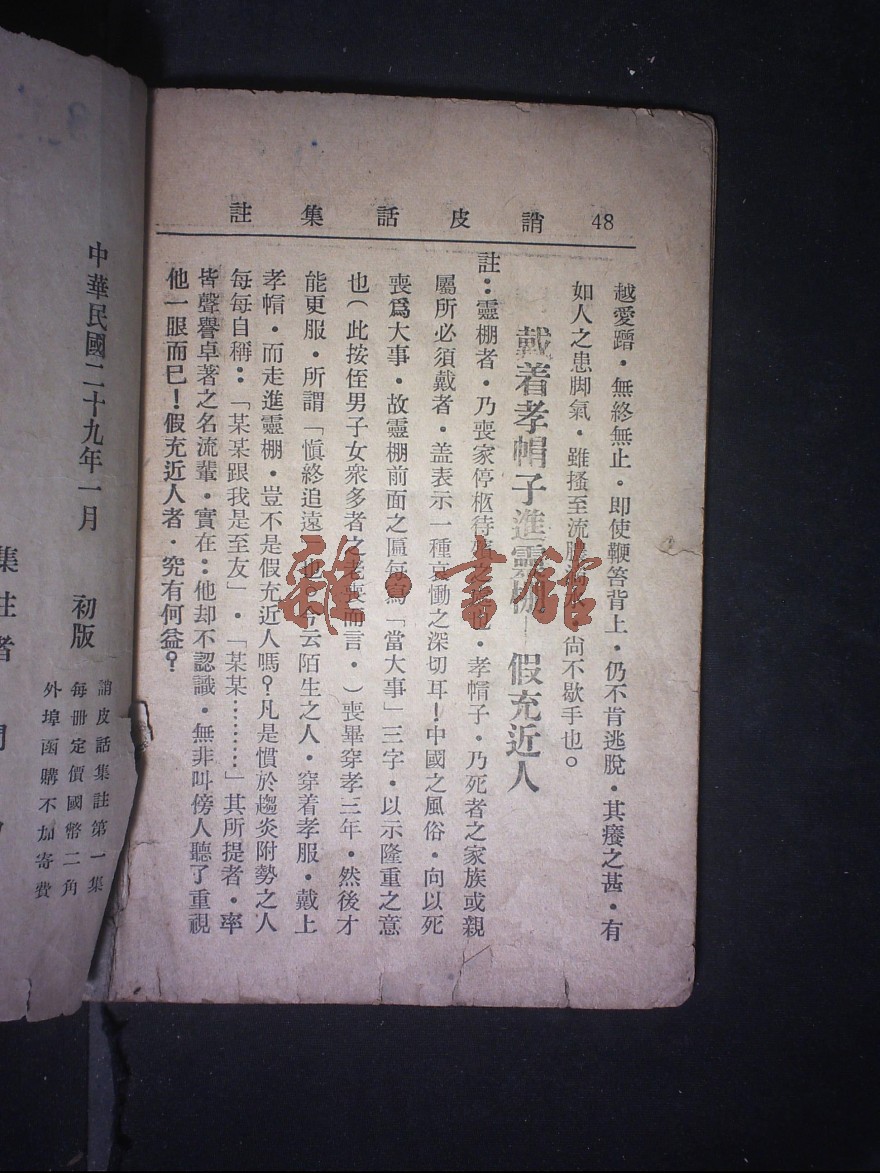 48 誚皮話集註
越愛蹭．無終無止．即使鞭笞背上．仍不肯逃脫．其癢之甚．有
如人之患脚氣．雖搔至流．尙不歇手也。
戴着孝帽子進靈棚—假充近人
註：靈棚者．乃喪家停柩待．孝帽子．乃死者之家族或親
屬所必須戴者．盖表示一種哀慟之深切耳！中國之風俗．向以死
喪爲大事．故靈棚前面之匾每寫「當大事」三字．以示隆重之意
也（此按侄男子女衆多者之老喪而言．）喪畢穿孝三年．然後才
能更服．所謂「愼終追遠」也．今云陌生之人．穿着孝服．戴上
孝帽．而走進靈棚．豈不是假充近人嗎？凡是慣於趨炎附勢之人
每每自稱：「某某跟我是至友」．「某某………」其所提者．率
皆聲譽卓著之名流輩．實在：他却不認識．無非叫傍人聽了重視
他一眼而巳！假充近人者．究有何益？
雜·書館
誚皮話集註第一集
每冊定價國幣二角
外埠函購不加寄費
中華民國二十九年一月 初版
集註者